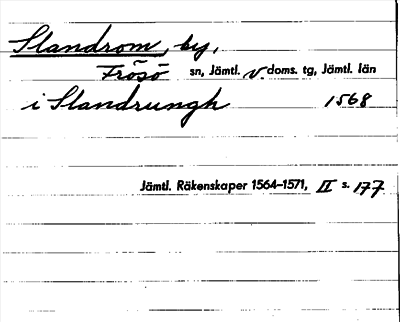 Slandrom, by,
Frösö sn, Jämtl. v doms. tg, Jämtl. län
i Slandrungh 1568
Jämtl. Räkenskaper 1564–1571, II s. 177